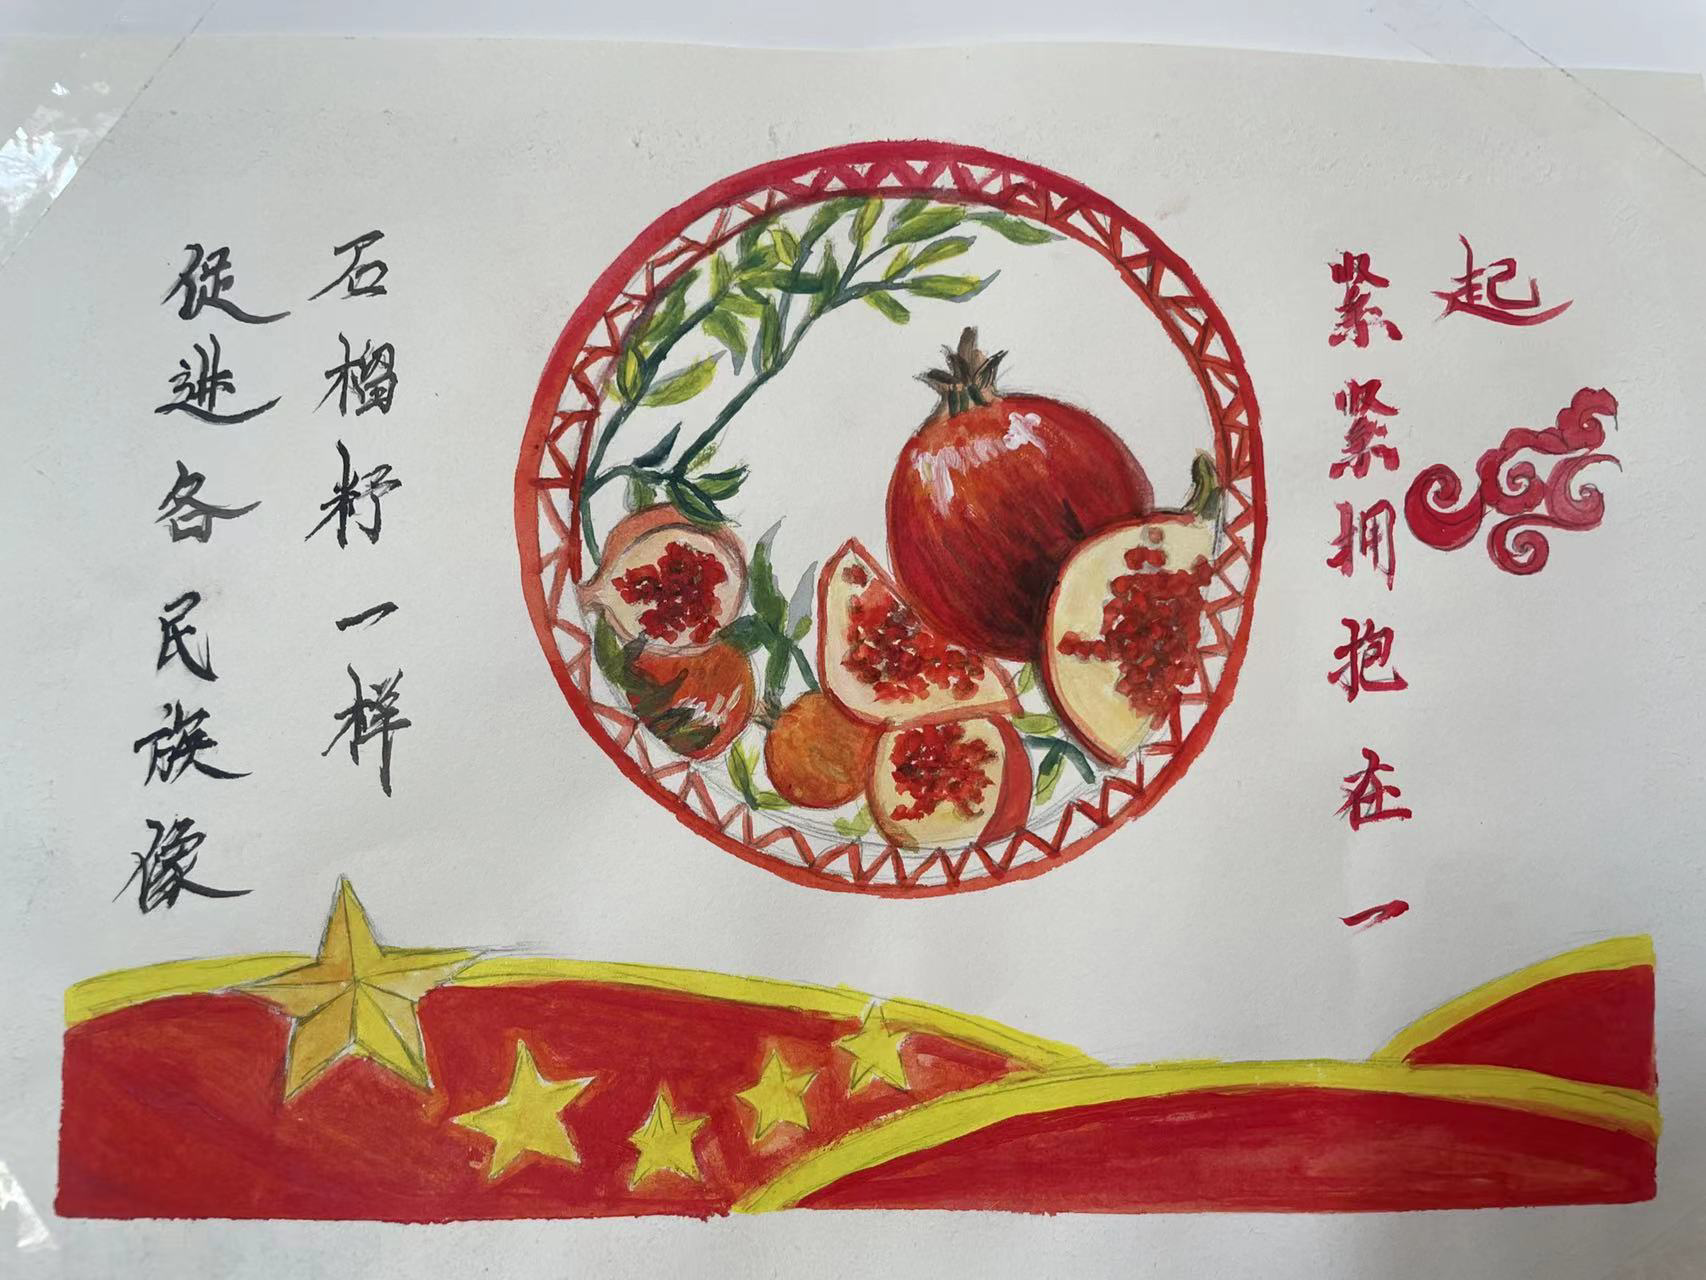 促进各民族像
石榴籽一样
紧紧拥抱在一
起